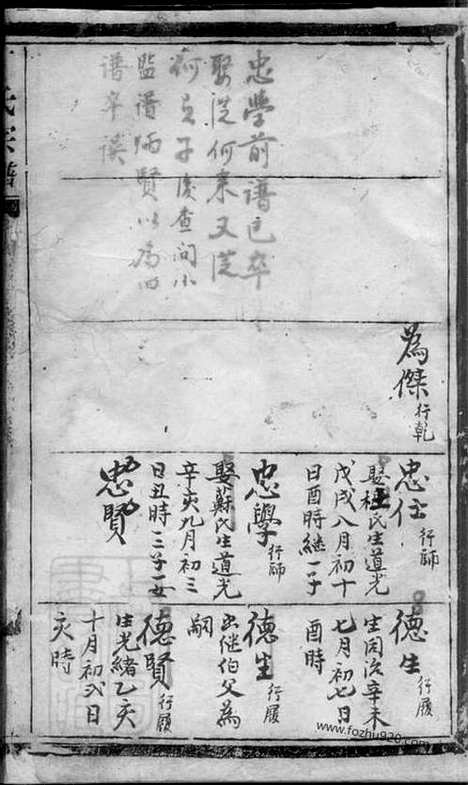 忠學前譜已卒
娶從何來又從
何見子後查問小
監譜師賢以為四
譜卒誤
為傑行乾
忠任行師
娶杜氏生道光
戊戌八月初十
日酉時繼一子
忠學行師
娶蘇氏生道光
辛亥九月初三
日丑時三子一女
忠賢
德生行履
生同治辛未
七月初七日
酉時
德生行履
出继伯父為
嗣
德賢行履
生光緒乙亥
十月初六日
亥時
氏宗譜
www.fozhu920.com